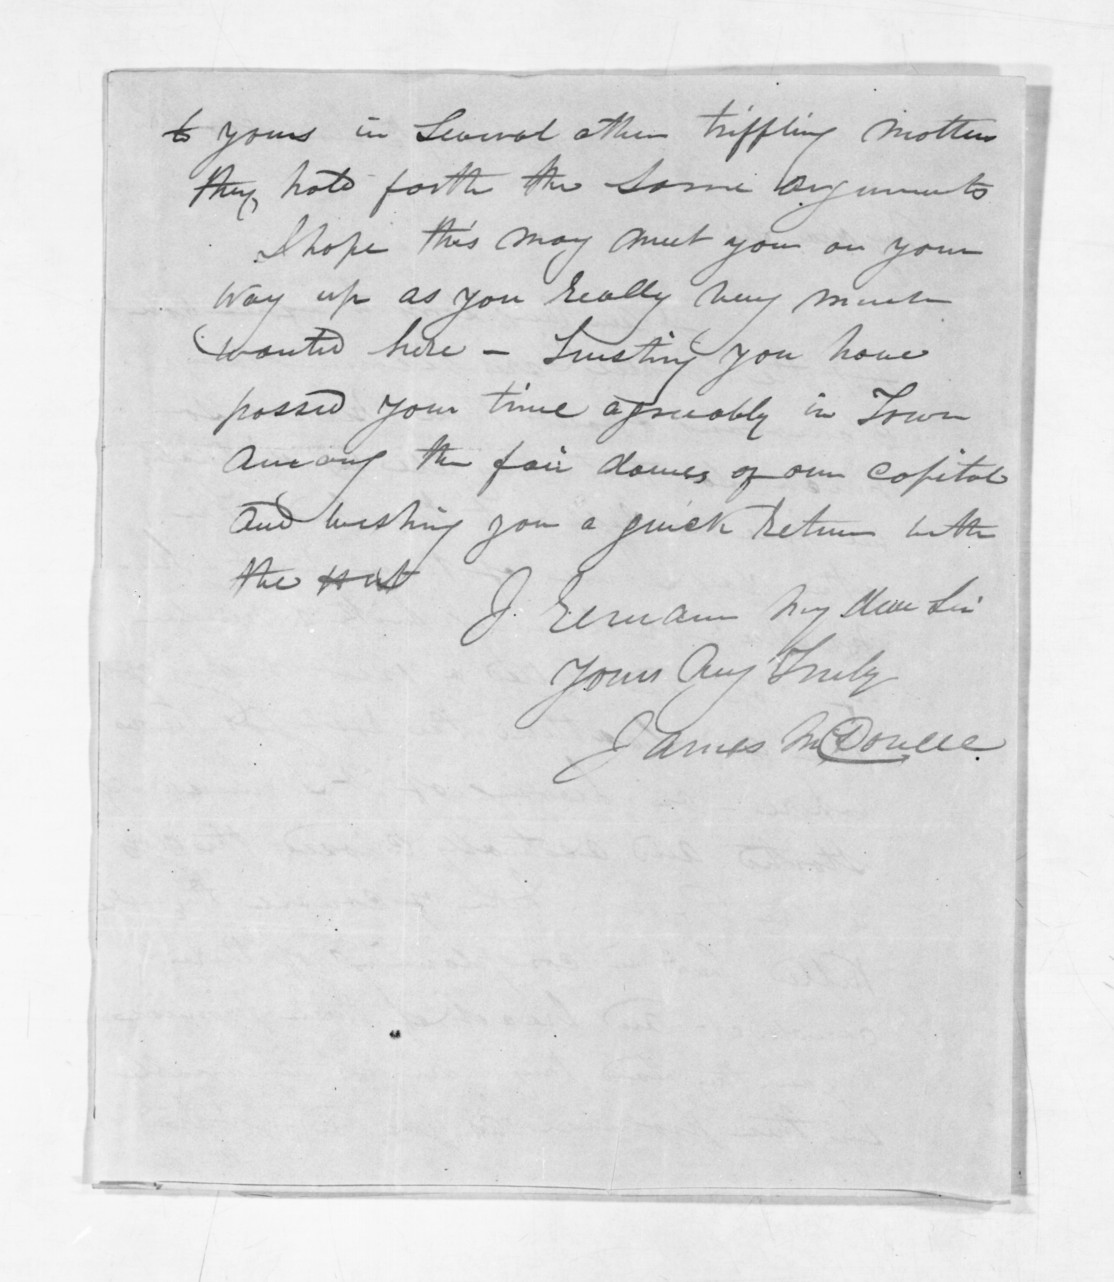 to yours in Several other triffling matters
they, hold forth the Same arguments
I hope this may meet you on your
way up as you really very much
wanted here – Trusting you have
passed your time agreeably in Town
among the fair dames of our Capitol
and wishing you a quick return with
the
I remain my dear Sir
Yours Very Truly
James McDonell